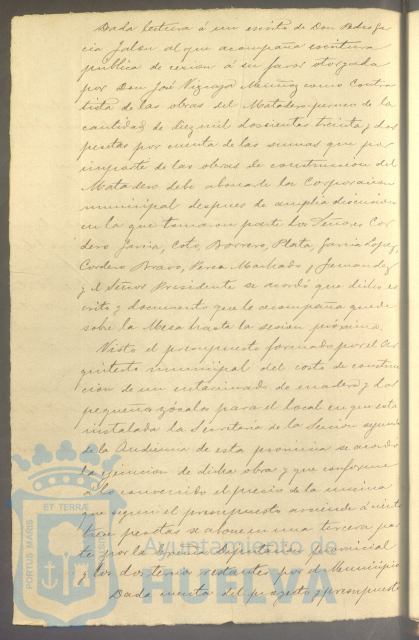 Dada lectura á un escrito de Don Pedro Gar
cia Jalon al que acompaña escritura
pública de cesion á su favor otorgada
por Don José Vizcaya Muñoz como Contra
tista de las obras del Matadero
cantidad de diez mil doscientas treinta y dos
pesetas por cuenta de las sumas que por
importe de las obras de construccion del
Matadero debe abonarle la Corporacion
municipal despues de amplia discusion
en la que tomaron parte los Señores Cor
dero Garcia, Coto, Borrero, Plata, Garcia Lopez,
Cordero Bravo, Perez Machado y Fernandez
y el Señor Presidente se acordó que dicho es
crito y documento que le acompaña quede
sobre la Mesa hasta la sesion próxima.
Visto el presupuesto formado por el Ar
quitecto municipal del costo de construc
cion de un entarimado de madera y dos
pequeños zócalos para el local en que está
instalada la Secretaria de la Seccion segunda
de la Audiencia de esta provincia se acordó
la ejecucion de dicha obra y que conforme
a lo convenido el precio de la misma
que segun el presupuesto asciende á
tres pesetas se abone en una tercera par
te por la Exma Diputacion provincial
y los dos tercios restantes por el Municipio
Dada cuenta del proyecto y presupuesto
ET TERRÆ
PORTUS MARIS
CUSTODIA
Ayuntamiento de
HUELVA